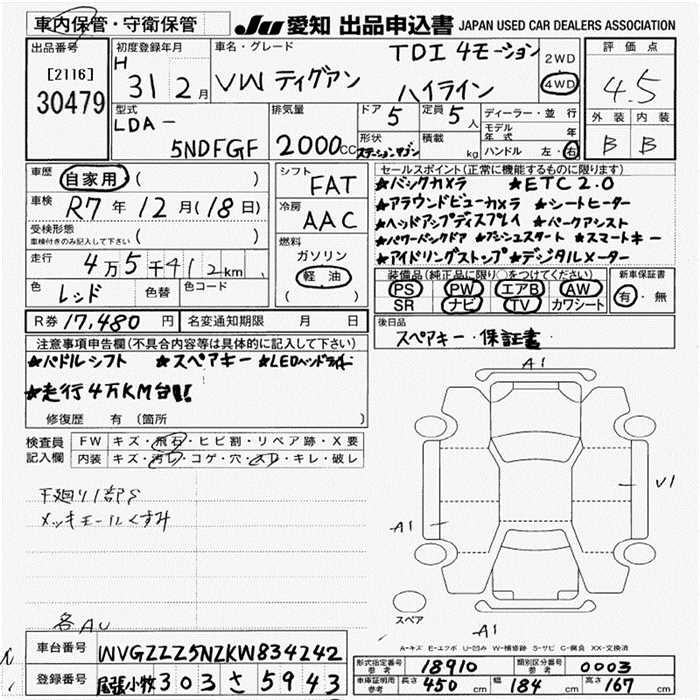 車内保管・守衛保管
JU 愛知 出品申込書 JAPAN USED CAR DEALERS ASSOCIATION
出品番号 [2116] 30479
初度登録年月 H 31 2月
車名・グレード VW ティグアン TDI 4モーション ハイライン
2WD 4WD
評価点 4.5
外装 内装
B B
型式 LDA- 5NDFGF
排気量 2000cc
ドア 5 定員 5人
形状 ステーションワゴン 積載 kg
ディーラー・並行
モデル年式 年
ハンドル 左・右
車歴 自家用 ( )
車検 R7年12月(18日)
受検形態 車検付きのみ記入して下さい ( )
走行 4万5千412km
色 レッド 色替 色コード
シフト FAT
冷房 AAC
燃料 ガソリン 軽油 ( )
セールスポイント(正常に機能するものに限ります)
★バックカメラ ★ETC2.0
★アラウンドビューカメラ ★シートヒーター
★ヘッドアップディスプレイ ★パークアシスト
★パワーバックドア ★プッシュスタート ★スマートキー
★アイドリングストップ ★デジタルメーター
装備品(純正品に限り○をつけてください) 新車保証書
PS PW エアB AW 有・無
SR ナビ TV カワシート
R券 17,480円 名変通知期限 月 日
後日品 スペアキー・保証書
注意事項申告欄(不具合内容等は具体的に記入して下さい)
★パドルシフト ★スペアキー ★LEDヘッドライト
★走行4万KM台!!
修復歴 有 〔箇所 〕
検査員記入欄 FW キズ・飛石・ヒビ割・リペア跡・X要
内装 キズ・汚レ・コゲ・穴・スレ・キレ・破レ
下廻り1部S
メッキモールくすみ
各AU
A1
V1
A1
A1
スペア
A-キズ E-エクボ U-凹み W-補修跡 S-サビ C-腐食 XX-交換済
車台番号 WVGZZZ5NZKW834242
登録番号 尾張小牧 303 さ 5943
形式指定番号 参考 18910 類別区分番号 参考 0003
車庫証明用 参考 長さ 450cm 幅 184cm 高さ 167cm